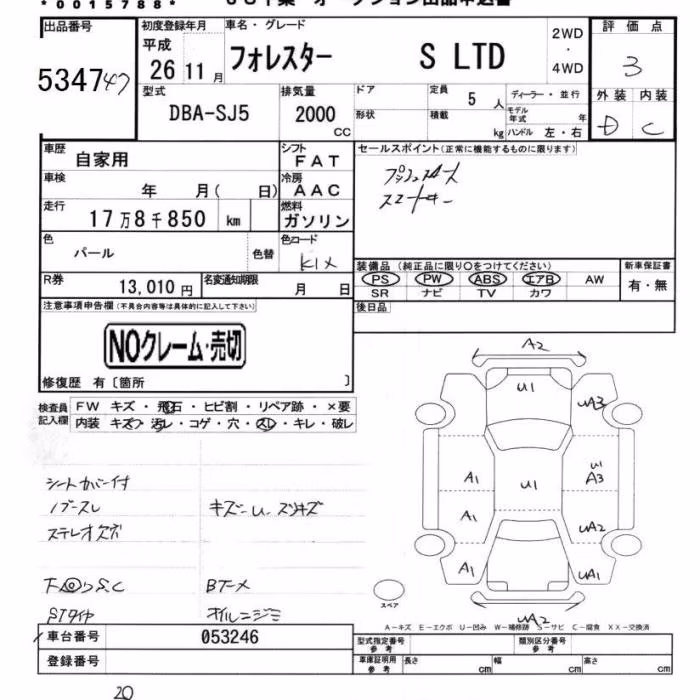 * 0 0 1 5 7 8 8 *
出品番号
53474
初度登録年月
平成
26 11 月
車名・グレード
フォレスター S LTD
2WD
・
4WD
評価点
3
外装 内装
D C
型式
DBA-SJ5
排気量
2000
CC
ドア
形状
定員
5 人
積載
kg
ディーラー・並行
モデル年式 年
ハンドル 左・右
車歴
自家用
シフト
F A T
車検
年 月( 日)
冷房
A A C
走行
17万8千850 km
燃料
ガソリン
色
パール
色替
色コード
K1X
R券
13,010 円
名変通知期限
月 日
セールスポイント(正常に機能するものに限ります)
プッシュスタート
スマートキー
装備品(純正品に限り〇をつけてください)
PS PW ABS エアB AW
SR ナビ TV カワ
新車保証書
有・無
後日品
注意事項申告欄(不具合内容等は具体的に記入して下さい)
NOクレーム・売切
修復歴 有〔箇所 〕
検査員
記入欄
FW キズ・飛石・ヒビ割・リペア跡・×要
内装 キズ・汚レ・コゲ・穴・スレ・キレ・破レ
シートカバー付
ステレオ欠
キズ-U-スリキズ
オイルニジミ
A2
U1
UA3
A1
U1
U1
A3
A1
UA2
A1
UA1
UA2
スペア
A-キズ E-エクボ U-凹み W-補修跡 S-サビ C-腐食 XX-交換済
車台番号
053246
登録番号
型式指定番号
参考
類別区分番号
参考
車庫証明用
参考
長さ cm
幅 cm
高さ cm
20